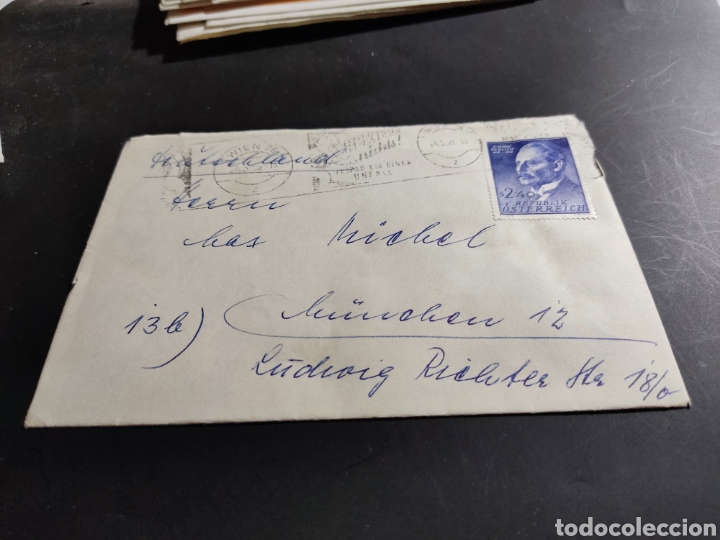 WIEN
Deutschland
2.40
REPUBLIK
ÖSTERREICH
Herrn
Max Michel
13b) München 12
Ludwig Richter Str 18/0
todocoleccion